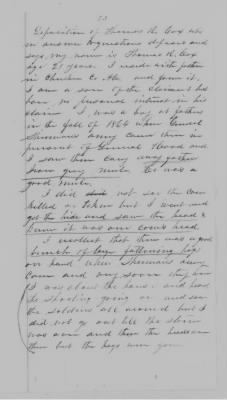 Deposition of Thomas R. Cox who
in answer to questions deposes and
says, my name is Thomas R. Cox
age 21 years. I reside with father
in Cherokee Co. Ala. and farm it.
I am a son of the claimant but
have no personal interest in his
claim. I was a boy at father's
in the fall of 1864 when General
Sherman's army came there in
pursuit of General Hood and
I saw them carry away father
from grey mule. It was a
good mule.
I did not see the cow
killed or taken but I went and
got the hide and saw the head &
knew it was our cow's head.
I recollect that there was a good
bunch of large fattening hogs
on hand when Sherman's army
came and very soon they
I was about the house and heard
the shooting going on and saw
the soldiers all around but I
did not go out till the storm
was over and then the heads were
there but the hogs were gone